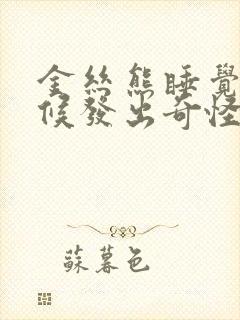 金絲熊睡覺
候發出奇怪
蘇暮色